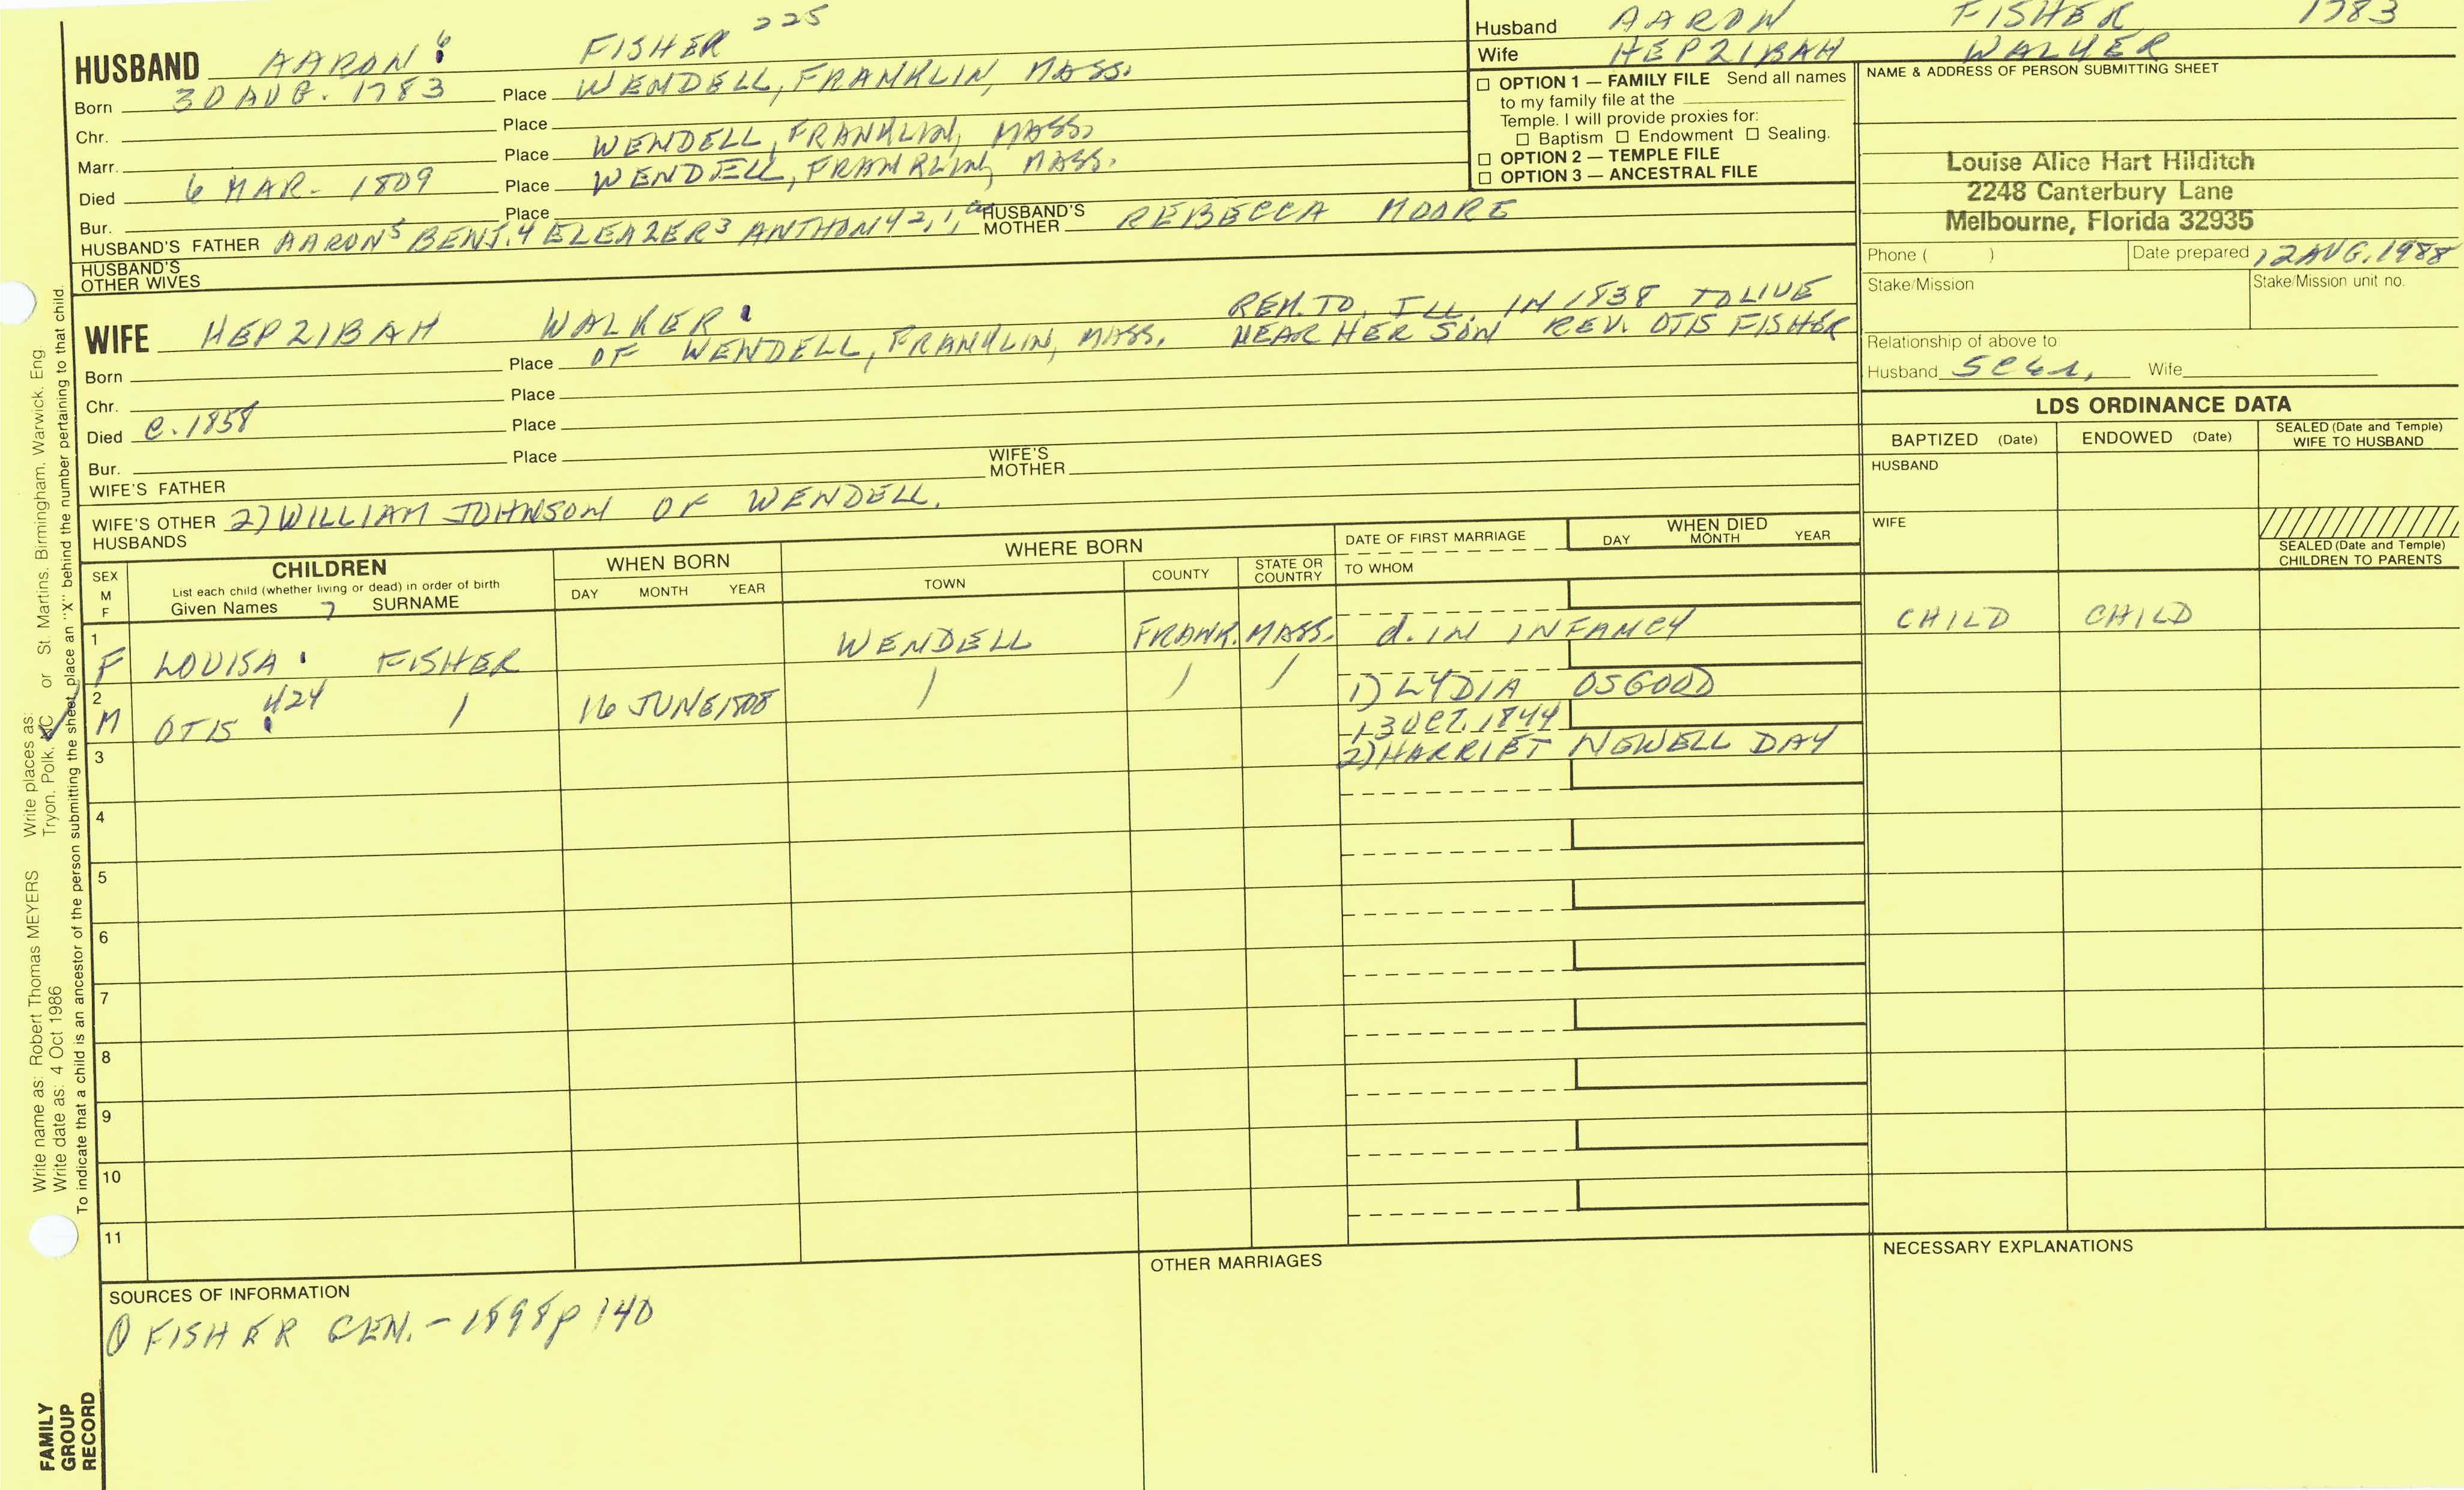 HUSBAND AARON 6 FISHER 225
Born 30 AUG. 1783 Place WENDELL, FRANKLIN, MASS.
Chr. Place
Marr. Place WENDELL, FRANKLIN, MASS.
Died 6 MAR. 1809 Place WENDELL, FRANKLIN, MASS.
Bur. Place
HUSBAND'S FATHER AARON5 BENJ.4 ELEAZER3 ANTHONY2,1, HUSBAND'S MOTHER REBECCA MOORE
HUSBAND'S OTHER WIVES
Husband AARON FISHER 1783
Wife HEPZIBAH WALKER
☐ OPTION 1 — FAMILY FILE Send all names
to my family file at the
Temple. I will provide proxies for:
☐ Baptism ☐ Endowment ☐ Sealing.
☐ OPTION 2 — TEMPLE FILE
☐ OPTION 3 — ANCESTRAL FILE
NAME & ADDRESS OF PERSON SUBMITTING SHEET
Louise Alice Hart Hilditch
2248 Canterbury Lane
Melbourne, Florida 32935
Phone ( ) Date prepared 12 AUG. 1988
Stake/Mission Stake/Mission unit no.
Relationship of above to:
Husband 5C6R, Wife
WIFE HEPZIBAH WALKER REM. TO ILL. IN 1838 TO LIVE
Born Place OF WENDELL, FRANKLIN, MASS. NEAR HER SON REV. OTIS FISHER
Chr. Place
Died c. 1858 Place
Bur. Place
WIFE'S FATHER WIFE'S MOTHER
WIFE'S OTHER HUSBANDS 2) WILLIAM JOHNSON OF WENDELL.
LDS ORDINANCE DATA
BAPTIZED (Date) ENDOWED (Date) SEALED (Date and Temple) WIFE TO HUSBAND
HUSBAND
WIFE
SEALED (Date and Temple) CHILDREN TO PARENTS
SEX M F
CHILDREN
List each child (whether living or dead) in order of birth
Given Names 7 SURNAME
WHEN BORN
DAY MONTH YEAR
WHERE BORN
TOWN COUNTY STATE OR COUNTRY
DATE OF FIRST MARRIAGE
TO WHOM
WHEN DIED
DAY MONTH YEAR
1 F LOUISA FISHER WENDELL FRANK. MASS. d. IN INFANCY CHILD CHILD
2 M OTIS 424 / 16 JUNE 1808 / / / 1) LYDIA OSGOOD
13 OCT. 1844
3 2) HARRIET NEWELL DAY
4
5
6
7
8
9
10
11
SOURCES OF INFORMATION
① FISHER GEN. - 1898 p 140
OTHER MARRIAGES
NECESSARY EXPLANATIONS
Write name as: Robert Thomas MEYERS Write places as: Tryon, Polk, NC or St. Martins, Birmingham, Warwick, Eng.
Write date as: 4 Oct 1986
To indicate that a child is an ancestor of the person submitting the sheet, place an "X" behind the number pertaining to that child.
FAMILY
GROUP
RECORD